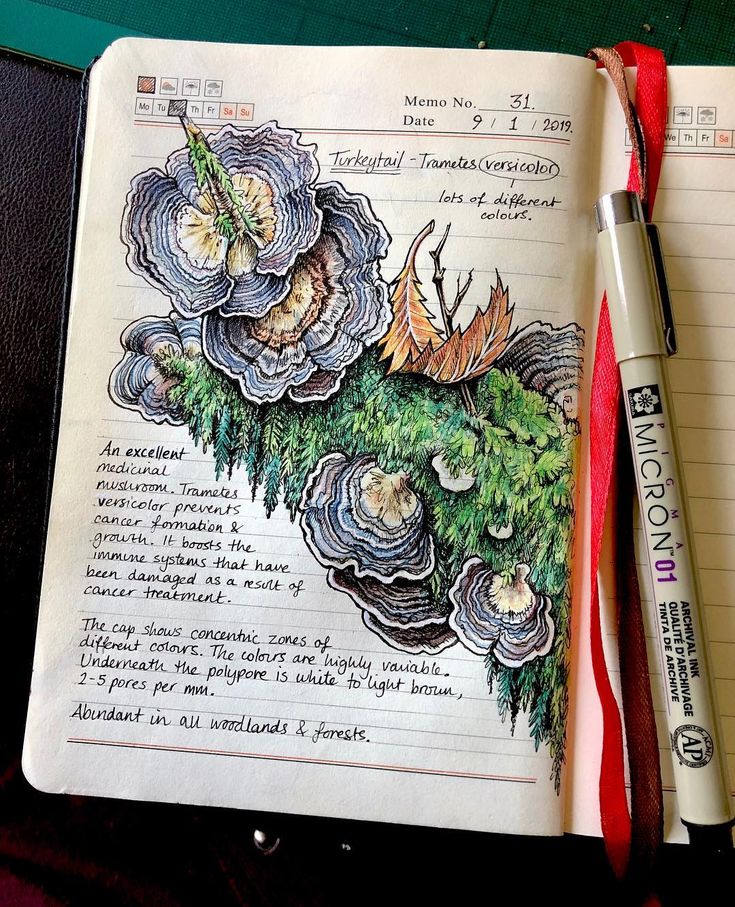 Mo Tu We Th Fr Sa Su
Memo No. 31.
Date 9 / 1 / 2019.
Turkeytail - Trametes versicolor
lots of different
colours.
An excellent
medicinal
mushroom. Trametes
versicolor prevents
cancer formation &
growth. It boosts the
immune systems that have
been damaged as a result of
cancer treatment.
The cap shows concentric zones of
different colours. The colours are highly variable.
Underneath the polypore is white to light brown,
2-5 pores per mm.
Abundant in all woodlands & forests.
We Th Fr Sa
PIGMA
MICRON 01
ARCHIVAL INK
QUALITÉ D'ARCHIVAGE
TINTA DE ARCHIVE
AP